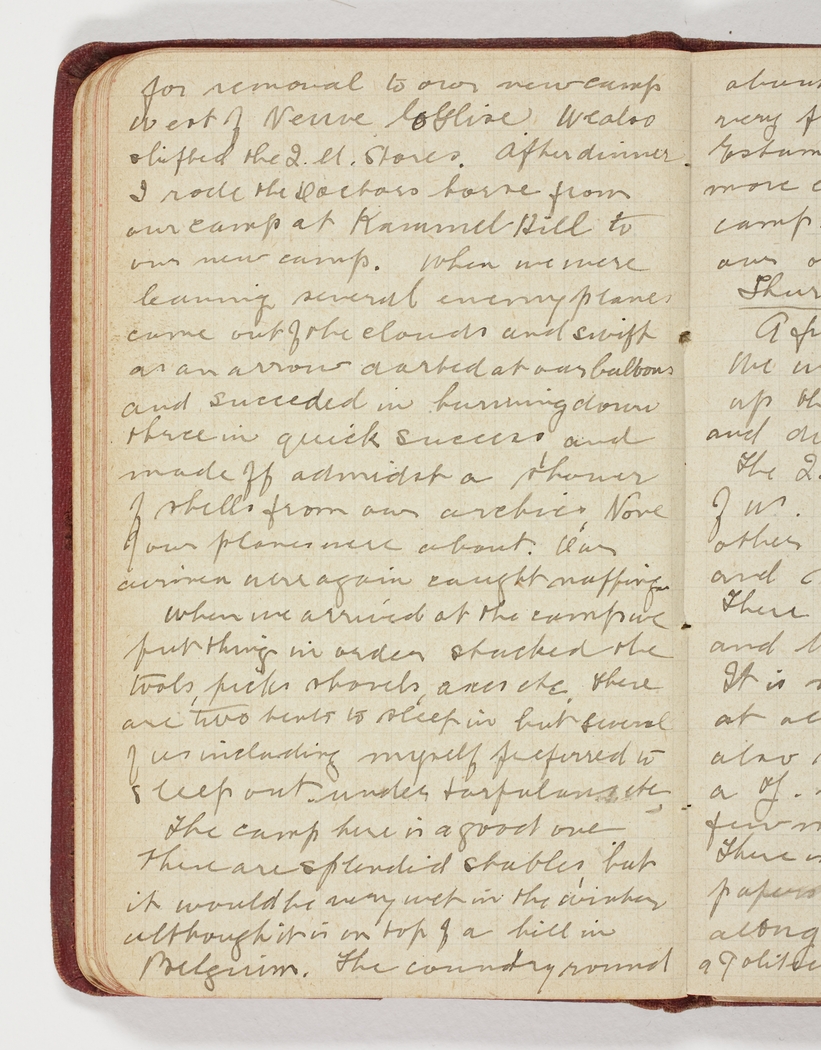 for removal to our new camp
west of Neuve Eglise. We also
shifted the Q.M. Stores. After dinner
I rode the Doctors horse from
our camp at Kammel Hill to
our new camp. When we were
leaving several enemy planes
came out of the clouds and swift
as an arrow darted at our balloons
and succeded in burning down
three in quick success and
made off admidst a shower
of shells from our archies. None
of our planes were about. Our
airmen were again caught napping.
When we arrived at the camp we
put things in order stacked the
tools, picks shovels, axes etc, there
are two tents to sleep in but several
of us including myself preferred to
sleep out under tarpulans etc
The camp here is a good one
There are splendid stables but
it would be very wet in the winter
although it is on top of a hill in
Belguim. The country round
very
more
camp.
our
Thur
up
and
The Q.
of us.
other
and
There
and
It is
at
also
a
few
There
papers
along
a Politic